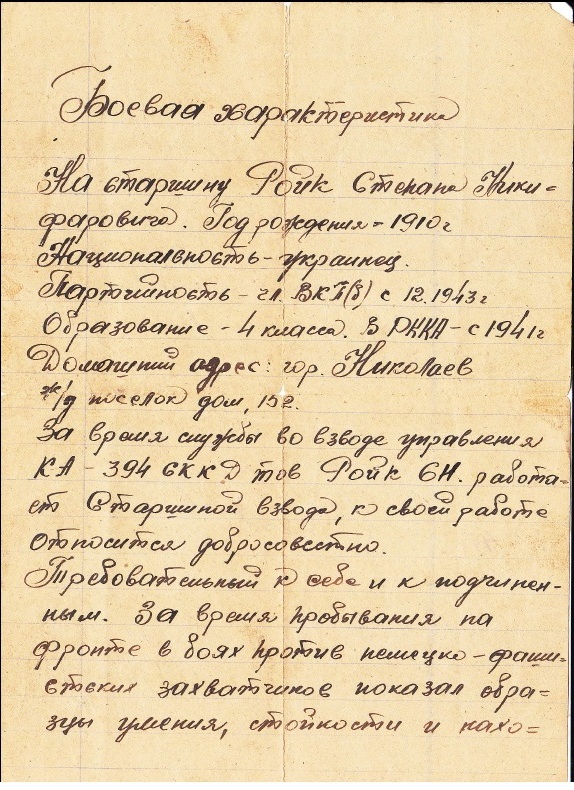 Боевая характеристика
На старшину Ройк Степана Ники=
фаровича. Год рождения = 1910 г
Национальность - украинец.
Партийность - чл. ВКП(б) с 12.1943 г
Образование - 4 класса. В РККА - с 1941 г
Домашний адрес: гор. Николаев
ж/д поселок дом, 152.
За время службы во взводе управления
КА - 394 СККД тов Ройк СН. работа-
ет Старшиной взвода, к своей работе
относится добросовестно.
Требовательный к себе и к подчинен-
ным. За время пробывания на
фронте в боях против немецко-фаши-
стских захватчиков показал обра=
зцы умения, стойкости и нахо=